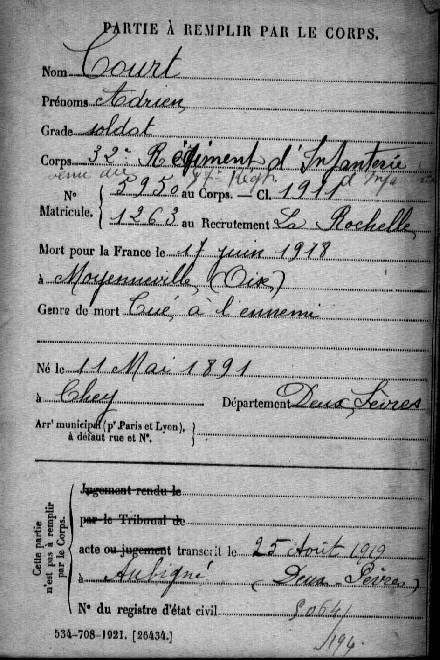 PARTIE À REMPLIR PAR LE CORPS.
Nom Court
Prénoms Adrien
Grade soldat
Corps 32e Régiment d'Infanterie
venu du Régt d'Infie
N° 5950 au Corps. — Cl. 1911
Matricule. 1263 au Recrutement La Rochelle
Mort pour la France le 17 juin 1918
à Moyenneville (Oise)
Genre de mort Tué à l'ennemi
Né le 11 Mai 1891
à Chey Département Deux Sèvres
Arrt municipal (pr Paris et Lyon),
à défaut rue et N°.
Cette partie
n'est pas à remplir
par le Corps.
Jugement rendu le
par le Tribunal de
acte ou jugement transcrit le 25 Août 1919
à Aubigné (Deux-Sèvres)
N° du registre d'état civil
534-708-1921. [26434.]